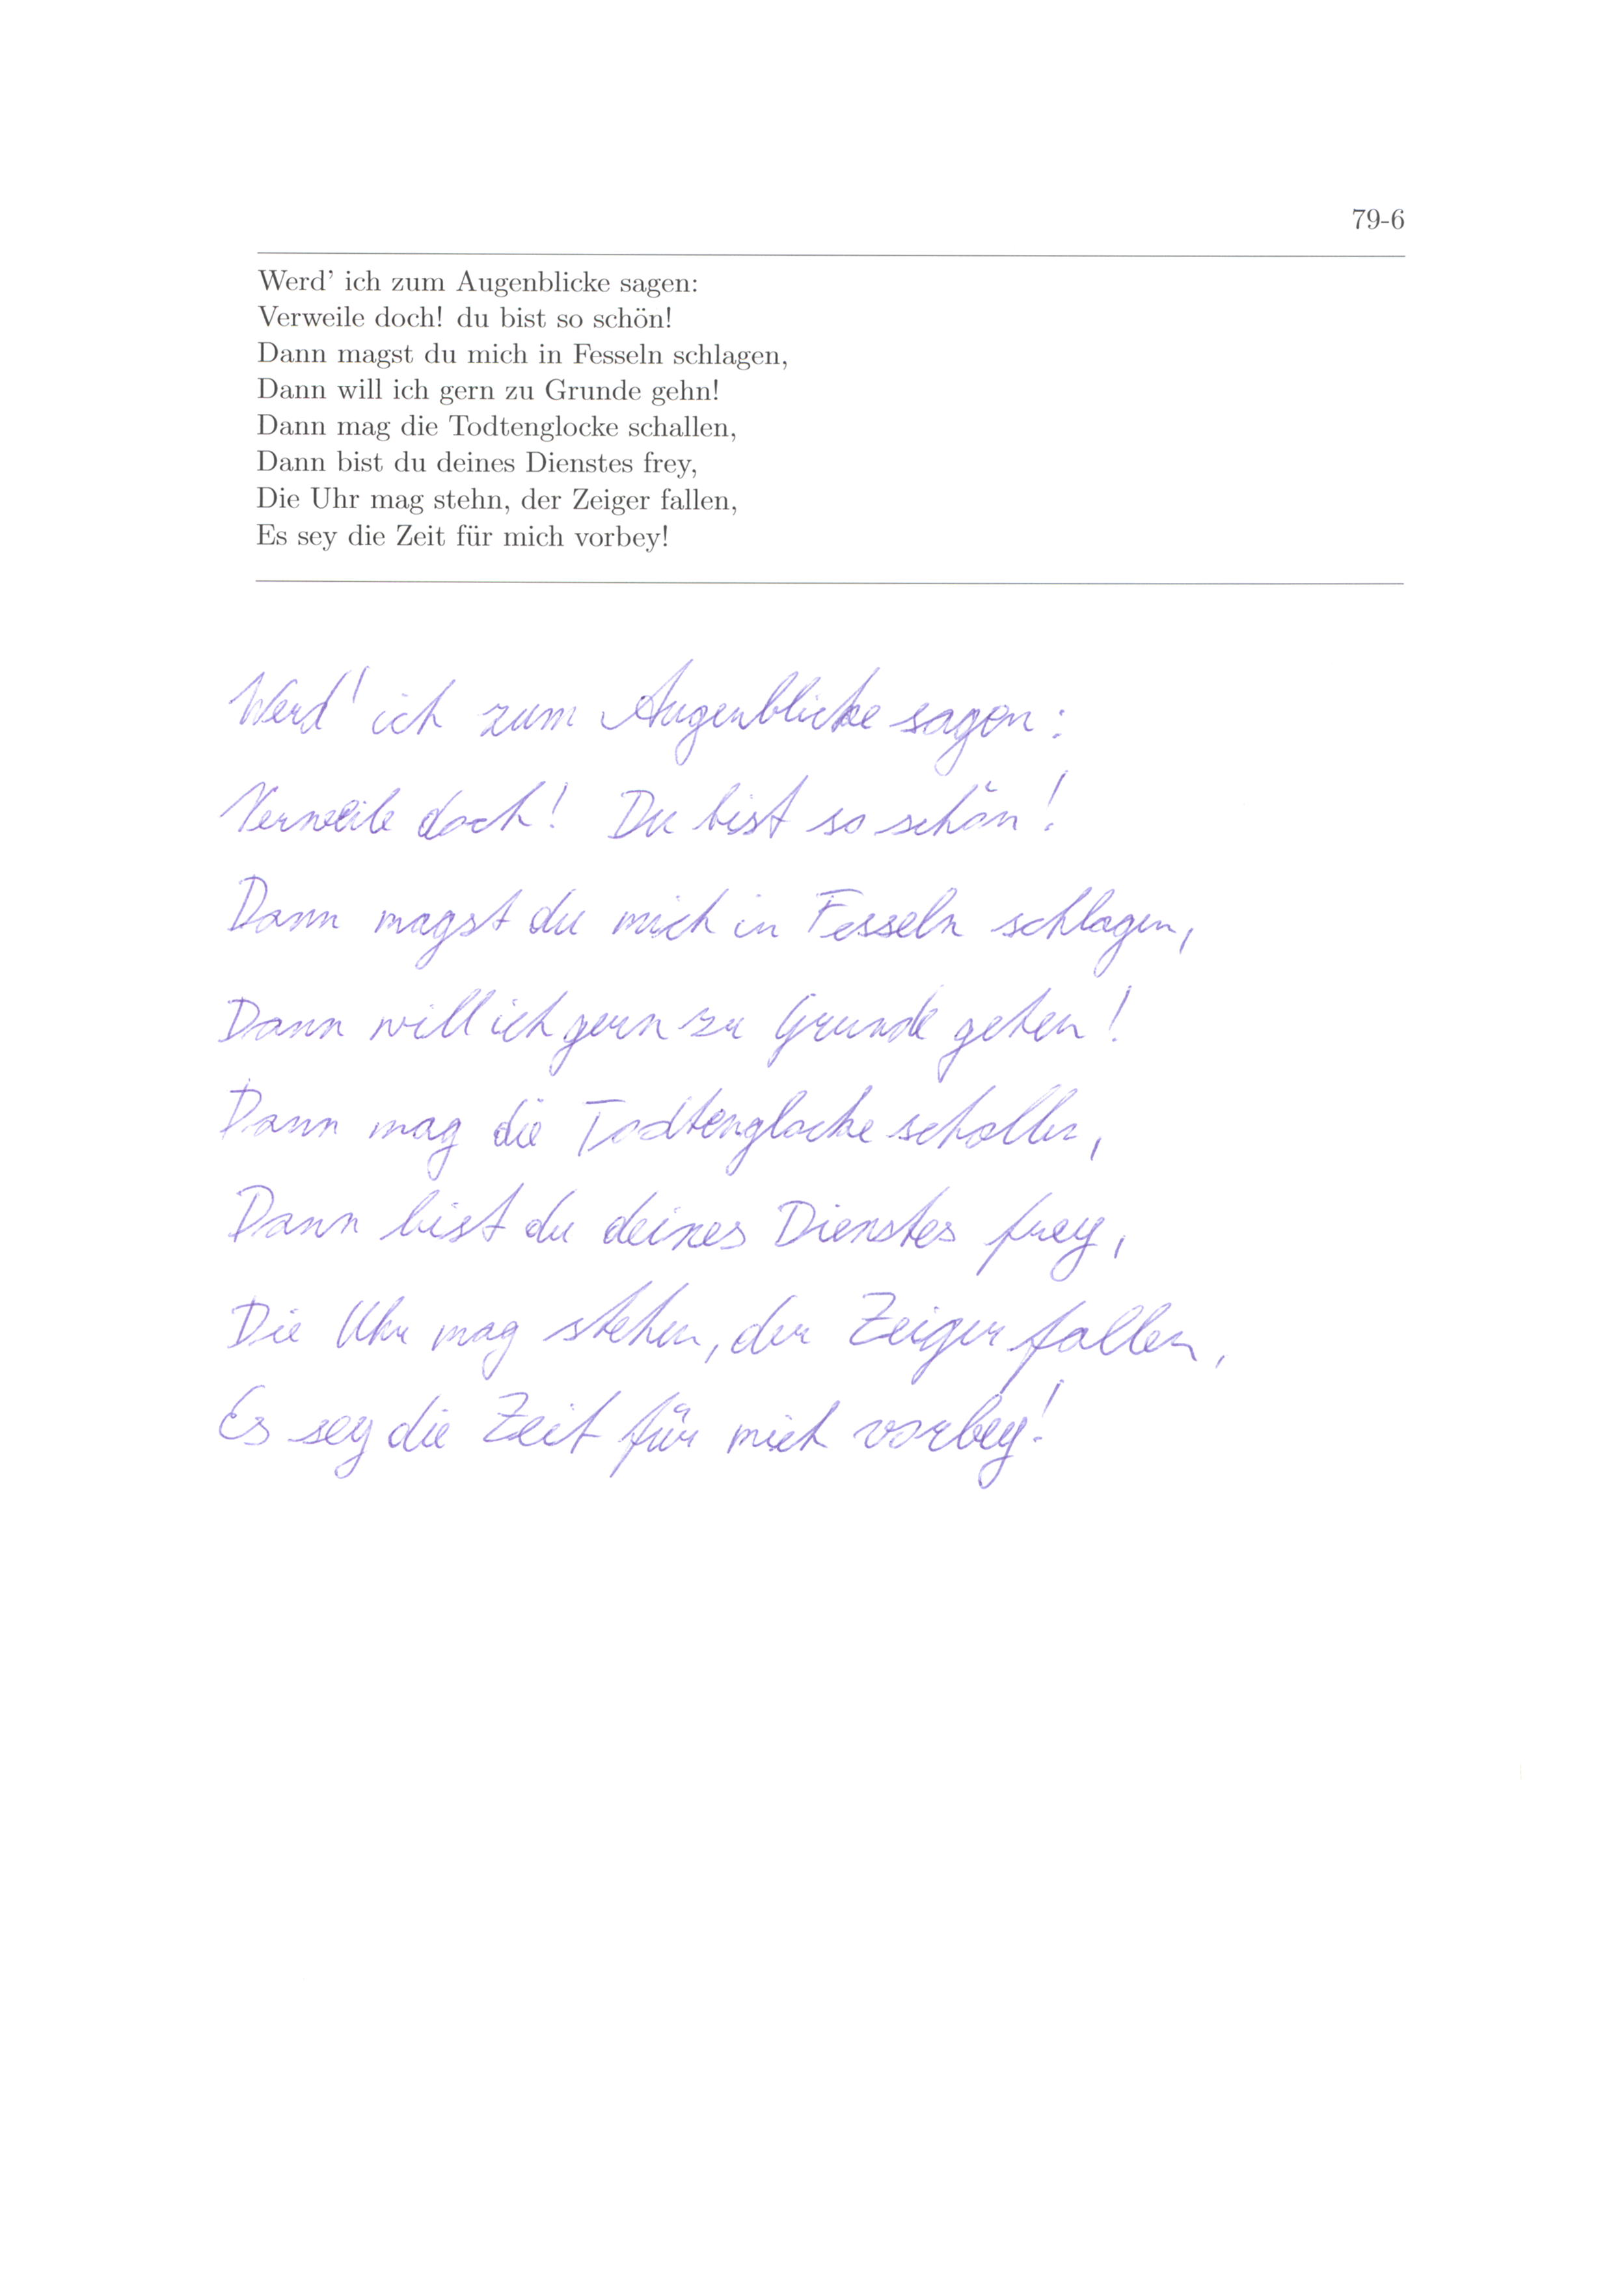 79-6
Werd' ich zum Augenblicke sagen:
Verweile doch! du bist so schön!
Dann magst du mich in Fesseln schlagen,
Dann will ich gern zu Grunde gehn!
Dann mag die Todtenglocke schallen,
Dann bist du deines Dienstes frey,
Die Uhr mag stehn, der Zeiger fallen,
Es sey die Zeit für mich vorbey!
Werd' ich zum Augenblicke sagen:
Verweile doch! Du bist so schön!
Dann magst du mich in Fesseln schlagen,
Dann will ich gern zu Grunde gehen!
Dann mag die Todtenglocke schallen,
Dann bist du deines Dienstes frey,
Die Uhr mag stehen, der Zeiger fallen,
Es sey die Zeit für mich vorbey!